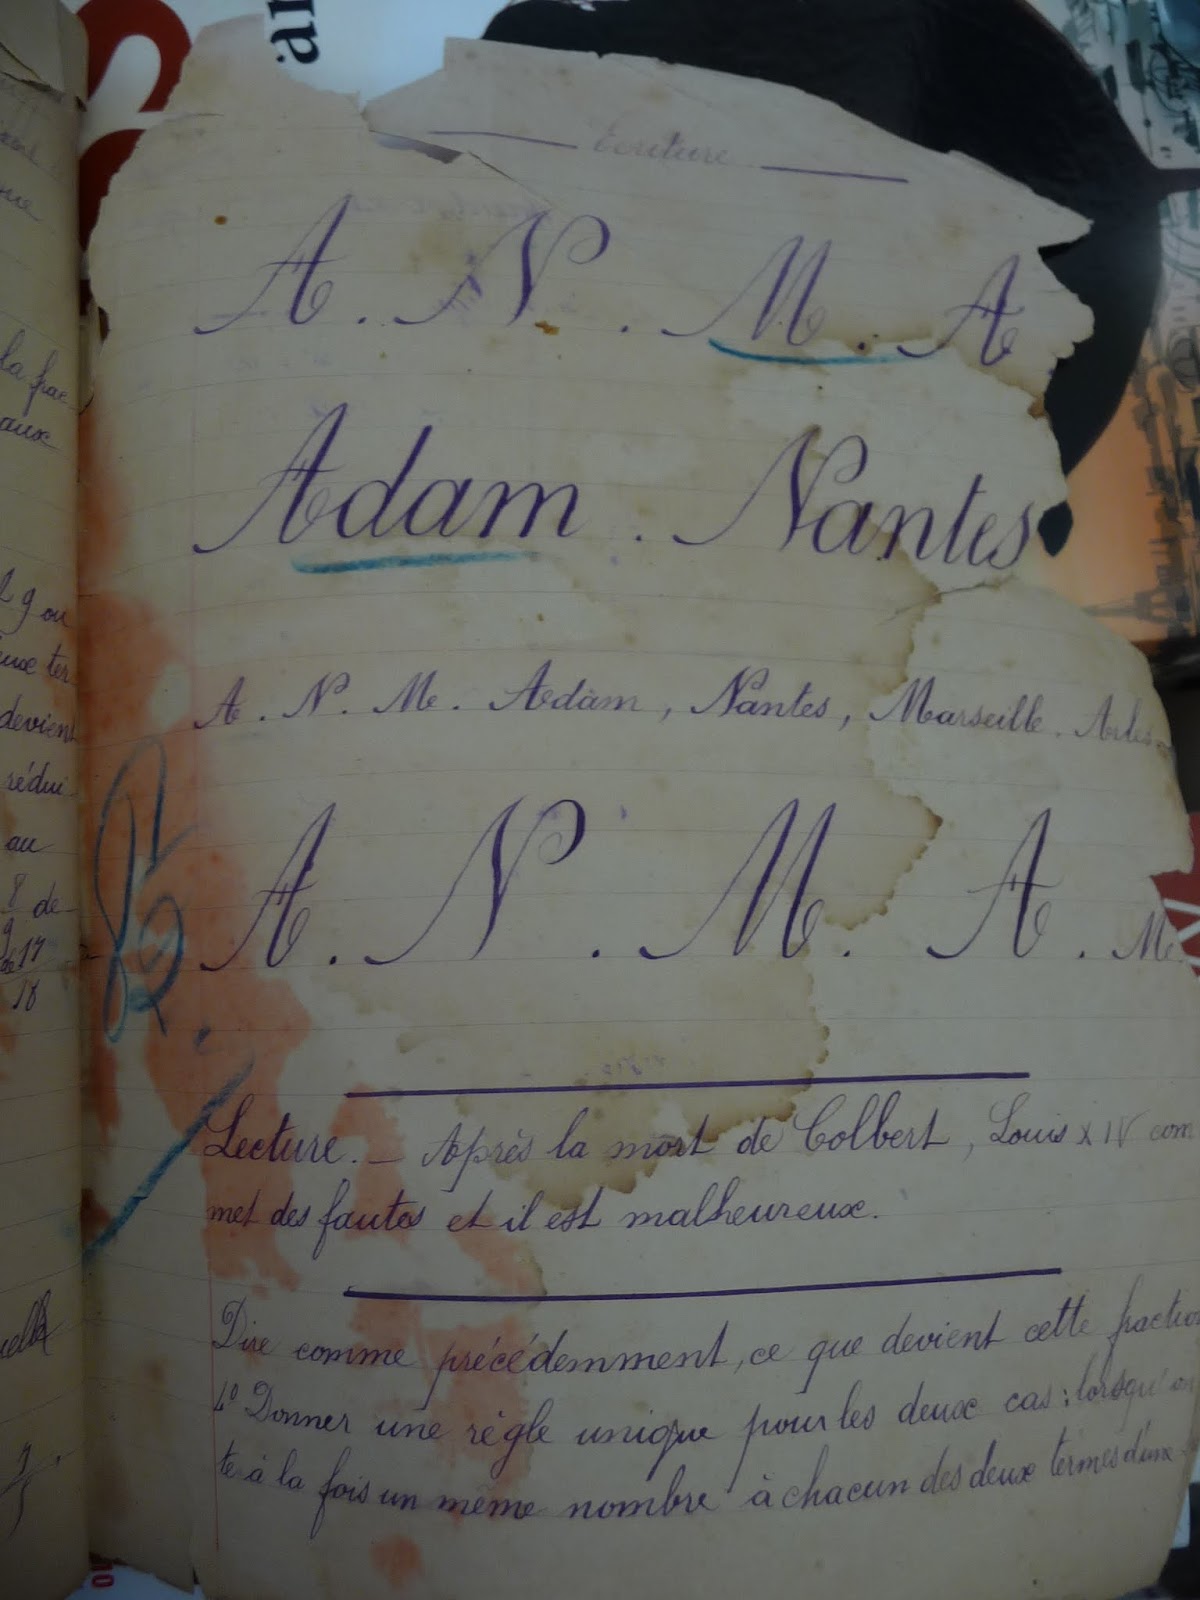 Ecriture
A. N. M. A
Adam. Nantes
A. N. M. Adam, Nantes, Marseille. Arles
A. N. M. A. M.
Lecture. _ Après la mort de Colbert, Louis XIV com
met des fautes et il est malheureux.
Dire comme précédemment, ce que devient cette fraction
4º Donner une règle unique pour les deux cas: lorsqu'on
te à la fois un même nombre à chacun des deux termes d'une
la frac
aux
9 ou
ter
devient
rédui
au
8 de
9
17
18